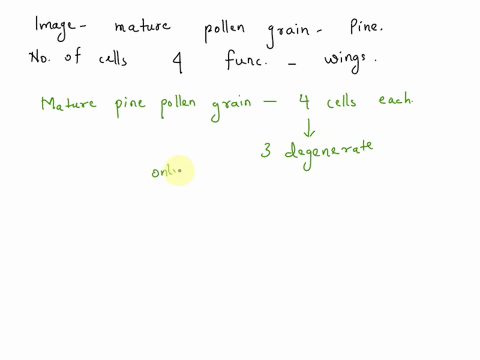 Image - mature pollen grain - Pine.
No. of cells 4 func. - wings.
Mature pine pollen grain - 4 cells each.
↓
3 degenerate
onl